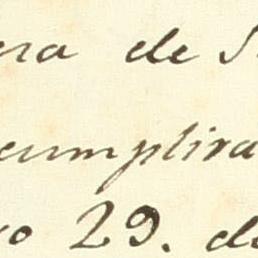 era de S
cumplira
yo 29. de